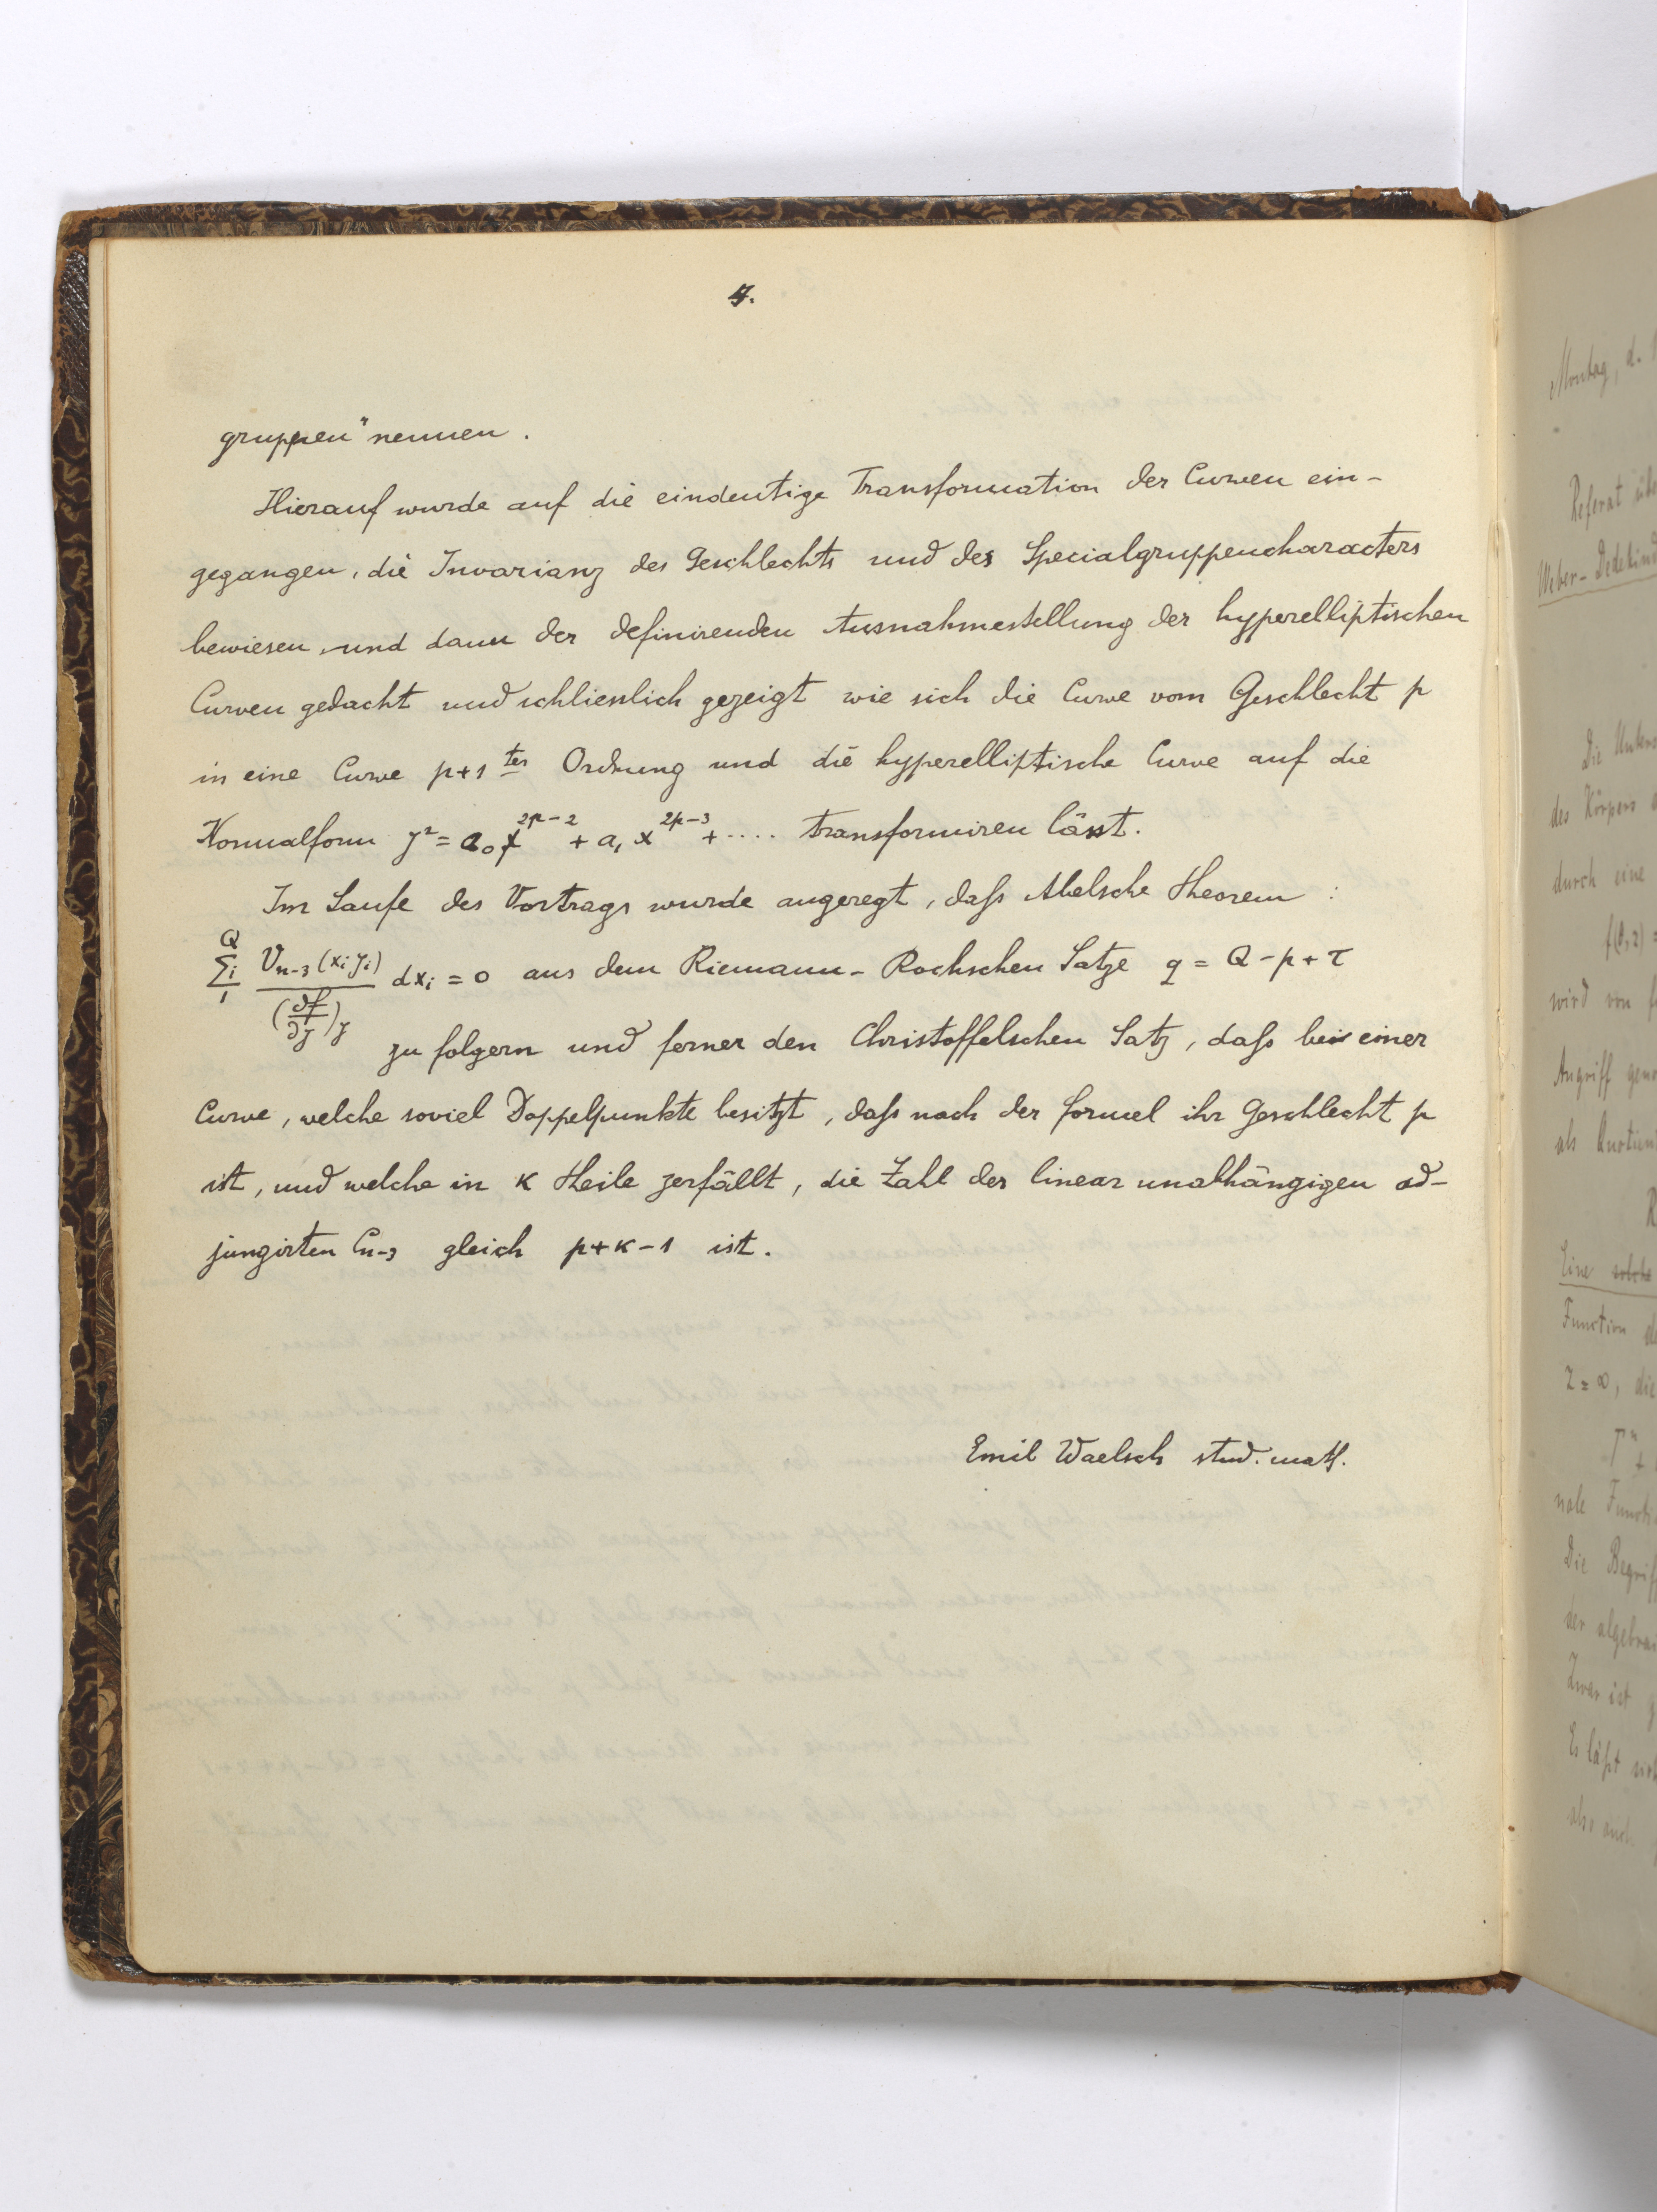 4.
gruppen" nennen.
Hierauf wurde auf die eindeutige Transformation der Curven ein-
gegangen, die Invarianz des Geschlechts und des Specialgruppencharacters
bewiesen, und dann der definirenden Ausnahmestellung der hyperelliptischen
Curven gedacht und schliesslich gezeigt wie sich die Curve vom Geschlecht p
in eine Curve p+1ter Ordnung und die hyperelliptische Curve auf die
Normalform y² = a₀x^{2p-2} + a₁x^{2p-3} + .... transformiren lässt.
Im Laufe des Vortrags wurde angeregt, daſs Abelsche Theorem :
\sum_{1}^{Q}{}_i \frac{V_{n-3}(x_i y_i)}{(\frac{∂f}{∂y})_y} dx_i = 0 aus dem Riemann-Rochschen Satze q = Q - p + τ
zu folgern und ferner den Christoffelschen Satz, daſs bei einer
Curve, welche soviel Doppelpunkte besitzt, daſs nach der Formel ihr Geschlecht p
ist, und welche in κ Theile zerfällt, die Zahl der linear unabhängigen ad-
jungirten C_{n-3} gleich p+κ-1 ist.
Emil Waelsch stud. math.
Montag, d.
Referat über
Weber-Dedekind
Die Unters
des Körpers
durch eine
wird von
Angriff
als
Eine solche
Function
z = ∞, die
nale Functi
Die Begrif
der algebrai
Zwar ist
Es läſst
also auch